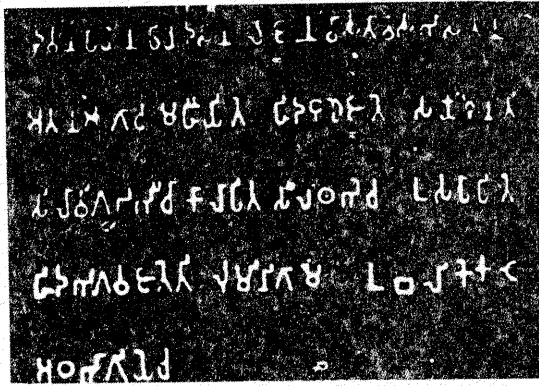 𑀤𑁂𑀯𑀸𑀦𑀧𑀺𑀬𑁂𑀦 𑀧𑀺𑀬𑀤𑀲𑀺𑀦 𑀮𑀸𑀚𑀺𑀦 𑀯𑀻𑀲𑀢𑀺𑀯𑀲𑀸𑀪𑀺𑀲𑀺𑀢𑁂𑀦
𑀅𑀢𑀦 𑀆𑀕𑀸𑀘 𑀫𑀳𑀻𑀬𑀺𑀢𑁂 𑀳𑀺𑀤 𑀩𑀼𑀥𑁂 𑀚𑀸𑀢𑁂 𑀲𑀓𑁆𑀬𑀫𑀼𑀦𑀻𑀢𑀺
𑀲𑀺𑀮𑀸 𑀯𑀺𑀕𑀟𑀪𑀻 𑀘𑀸 𑀓𑀸𑀮𑀸𑀧𑀺𑀢 𑀲𑀺𑀮𑀸𑀣𑀪𑁂 𑀘 𑀉𑀲𑀧𑀸𑀧𑀺𑀢𑁂
𑀳𑀺𑀤 𑀪𑀕𑀯𑀁 𑀚𑀸𑀢𑁂𑀢𑀺 𑀮𑀼𑀁𑀫𑀺𑀦𑀺 𑀕𑀸𑀫𑁂 𑀉𑀩𑀮𑀺𑀓𑁂 𑀓𑀝𑁂
𑀅𑀞𑀪𑀸𑀕𑀺𑀬𑁂 𑀘